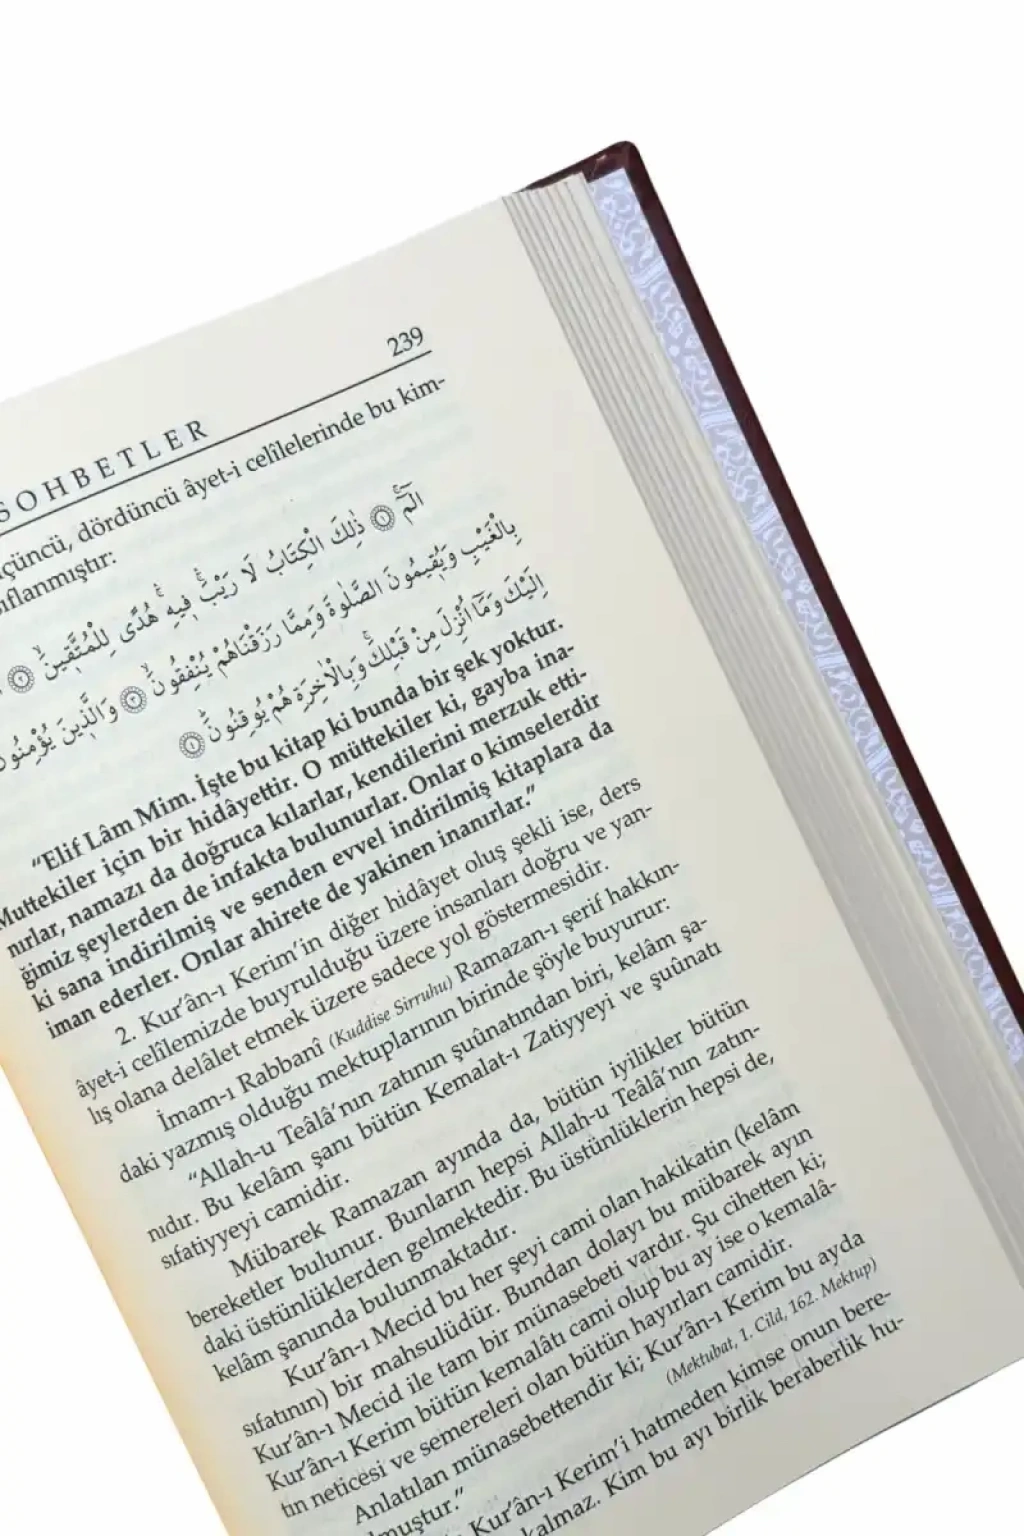 239
SOHBETLER
çüncü, dördüncü âyet-i celîlelerinde bu kim-
ıflanmıştır:
الٓمٓ ﴿١﴾ ذٰلِكَ الْكِتَابُ لَا رَيْبَۚ ف۪يهِۚ هُدًى لِلْمُتَّق۪ينَۙ ﴿٢﴾
بِالْغَيْبِ وَيُق۪يمُونَ الصَّلٰوةَ وَمِمَّا رَزَقْنَاهُمْ يُنْفِقُونَۙ ﴿٣﴾ وَالَّذ۪ينَ يُؤْمِنُونَ
اِلَيْكَ وَمَٓا اُنْزِلَ مِنْ قَبْلِكَۚ وَبِالْاٰخِرَةِ هُمْ يُوقِنُونَۜ ﴿٤﴾
“Elif Lâm Mim. İşte bu kitap ki bunda bir şek yoktur.
Muttekiler için bir hidâyettir. O müttekiler ki, gayba ina-
nırlar, namazı da doğruca kılarlar, kendilerini merzuk etti-
ğimiz şeylerden de infakta bulunurlar. Onlar o kimselerdir
ki sana indirilmiş ve senden evvel indirilmiş kitaplara da
iman ederler. Onlar ahirete de yakinen inanırlar.”
2. Kur’ân-ı Kerim’in diğer hidâyet oluş şekli ise, ders
âyet-i celîlemizde buyrulduğu üzere insanları doğru ve yan-
lış olana delâlet etmek üzere sadece yol göstermesidir.
İmam-ı Rabbanî (Kuddise Sirruhu) Ramazan-ı şerif hakkın-
daki yazmış olduğu mektuplarının birinde şöyle buyurur:
“Allah-u Teâlâ’nın zatının şuûnatından biri, kelâm şa-
nıdır. Bu kelâm şanı bütün Kemalat-ı Zatiyyeyi ve şuûnatı
sıfatiyyeyi camidir.
Mübarek Ramazan ayında da, bütün iyilikler bütün
bereketler bulunur. Bunların hepsi Allah-u Teâlâ’nın zatın-
daki üstünlüklerden gelmektedir. Bu üstünlüklerin hepsi de,
kelâm şanında bulunmaktadır.
Kur’ân-ı Mecid bu her şeyi cami olan hakikatin (kelâm
sıfatının) bir mahsulüdür. Bundan dolayı bu mübarek ayın
Kur’ân-ı Mecid ile tam bir münasebeti vardır. Şu cihetten ki;
Kur’ân-ı Kerim bütün kemalâtı cami olup bu ay ise o kemalâ-
tın neticesi ve semereleri olan bütün hayırları camidir.
Anlatılan münasebettendir ki; Kur’ân-ı Kerim bu ayda
lmuştur.” (Mektubat, 1. Cild, 162. Mektup)
Kur’ân-ı Kerim’i hatmeden kimse onun bere-
kalmaz. Kim bu ayı birlik beraberlik hu-